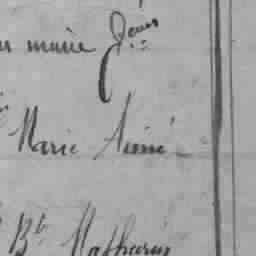 marie
Marie Aimé
Bte Mathurin